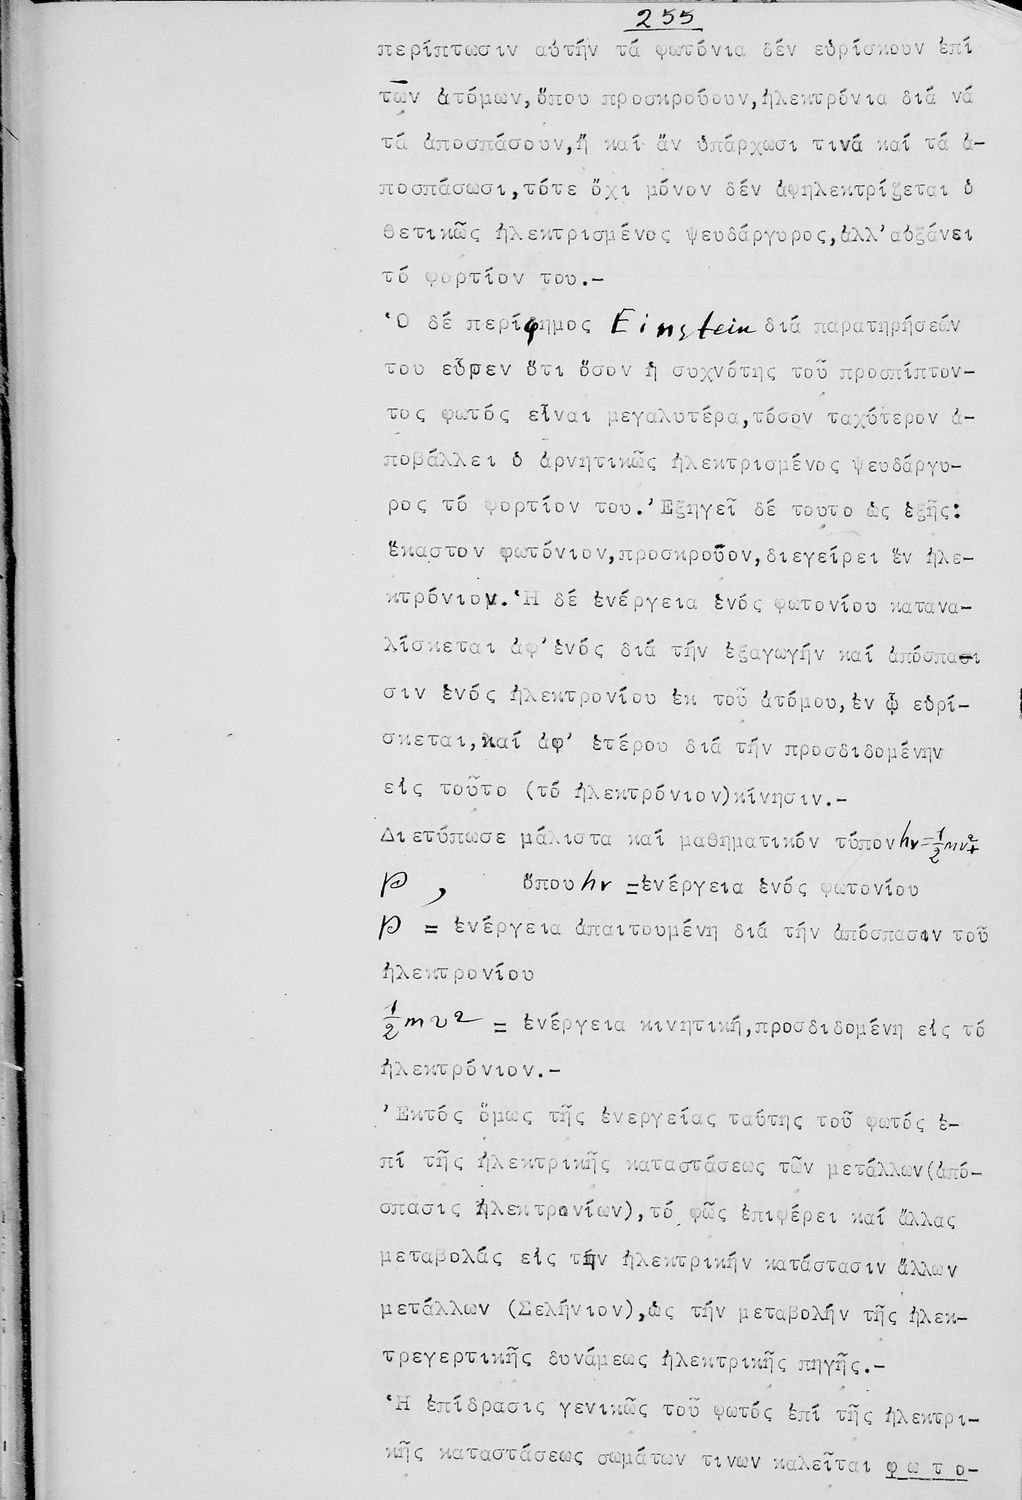 255
περίπτωσιν αὐτήν τά φωτόνια δέν εὑρίσκουν ἐπί
τῶν ἀτόμων,ὅπου προσκρούουν,ἠλεκτρόνια διά νά
τά ἀποσπάσουν,ἤ καί ἄν ὑπάρχωσι τινά καί τά ἀ-
ποσπάσωσι,τότε ὄχι μόνον δέν ἀφηλεκτρίζεται ὁ
θετικῶς ἠλεκτρισμένος ψευδάργυρος,ἀλλ'αὐξάνει
τό φορτίον του.-
Ὁ δέ περίφημος Einstein διά παρατηρήσεών
του εὗρεν ὅτι ὅσον ἡ συχνότης τοῦ προσπίπτον-
τος φωτός εἶναι μεγαλυτέρα,τόσον ταχύτερον ἀ-
ποβάλλει ὁ ἀρνητικῶς ἠλεκτρισμένος ψευδάργυ-
ρος τό φορτίον του.Ἐξηγεῖ δέ τουτο ὡς ἑξῆς:
ἕκαστον φωτόνιον,προσκροῦον,διεγείρει ἕν ἠλε-
κτρόνιον.Ἡ δέ ἐνέργεια ἑνός φωτονίου κατανα-
λίσκεται ἀφ'ἑνός διά τήν ἐξαγωγήν καί ἀπόσπασι
σιν ἑνός ἠλεκτρονίου ἐκ τοῦ ἀτόμου,ἐν ᾧ εὑρί-
σκεται,καί ἀφ' ἑτέρου διά τήν προσδιδομένην
εἰς τοῦτο (τό ἠλεκτρόνιον)κίνησιν.-
Διετύπωσε μάλιστα καί μαθηματικόν τύπον hv=½mv²+
p , ὅπου hv =ἐνέργεια ἑνός φωτονίου
p = ἐνέργεια ἀπαιτουμένη διά τήν ἀπόσπασιν τοῦ
ἠλεκτρονίου
½mv² = ἐνέργεια κινητική,προσδιδομένη εἰς τό
ἠλεκτρόνιον.-
Ἐκτός ὅμως τῆς ἐνεργείας ταύτης τοῦ φωτός ἐ-
πί τῆς ἠλεκτρικῆς καταστάσεως τῶν μετάλλων(ἀπό-
σπασις ἠλεκτρονίων),τό φῶς ἐπιφέρει καί ἄλλας
μεταβολάς εἰς τήν ἠλεκτρικήν κατάστασιν ἄλλων
μετάλλων (Σελήνιον),ὡς τήν μεταβολήν τῆς ἠλεκ-
τρεγερτικῆς δυνάμεως ἠλεκτρικῆς πηγῆς.-
Ἡ ἐπίδρασις γενικῶς τοῦ φωτός ἐπί τῆς ἠλεκτρι-
κῆς καταστάσεως σωμάτων τινων καλεῖται φ ω τ ο-